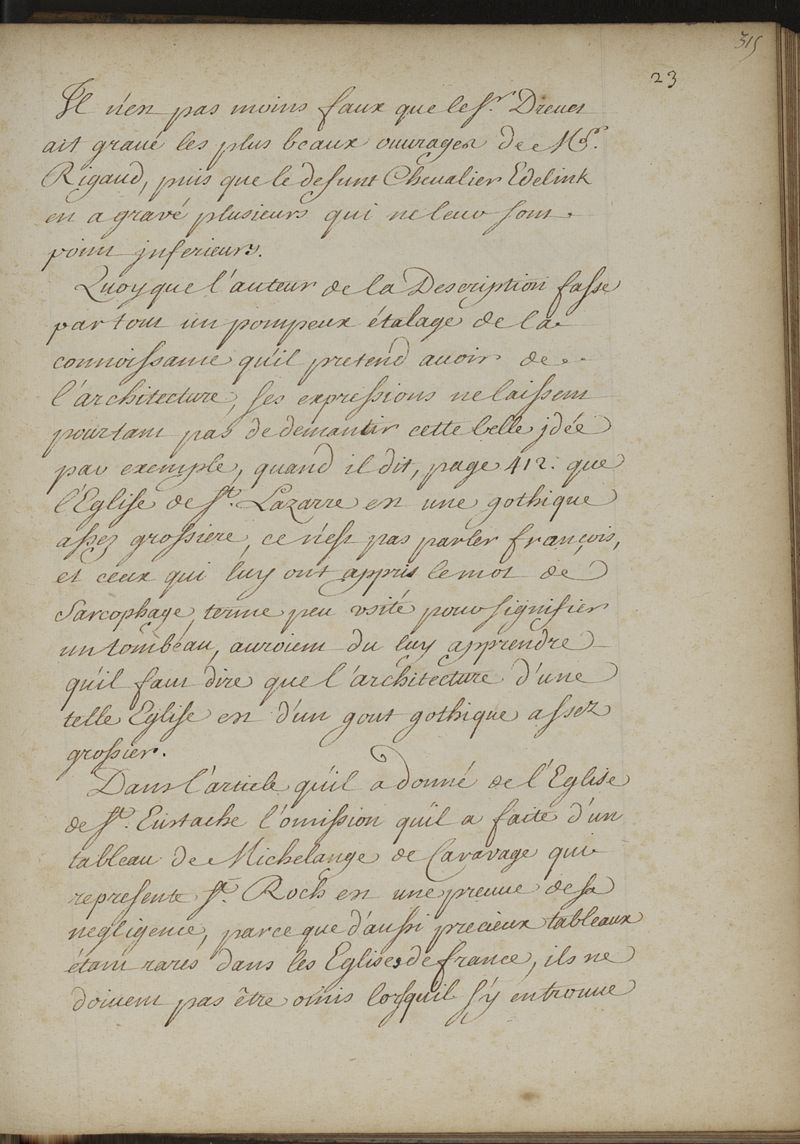 315
23
Il n'est pas moins faux que le Sr. Drevet
ait gravé les plus beaux ouvrages de Mr.
Rigaud, puis que le defunt Chevalier Edelink
en a gravé plusieurs qui ne leur sont
point jnferieurs.
Quoyque l'auteur de la Description fasse
par tout un pompeux étalage de la
connoissance qu'il pretend avoir de
l'architecture, ses expressions ne laissent
pourtant pas de dementir cette belle jdée
par exemple, quand il dit, page 412. que
l'Eglise de St. Lazarre est une gothique
assez grossiere, ce n'est pas parler françois,
et ceux qui luy ont appris le mot de
Sarcophage, terme peu usité pour signifier
un tombeau, auroient du luy apprendre
qu'il faut dire que l'architecture d'une
telle Eglise est d'un gout gothique assez
grossier.
Dans l'article qu'il a donné de l'Eglise
de St. Eustache l'omission qu'il a faite d'un
tableau de Michelange de Caravage qui
represente St. Roch est une preuve de sa
negligence, parce que d'aussi precieux tableaux
étant rares dans les Eglises de france, ils ne
doivent pas être omis lorsqu'il s'y en trouve